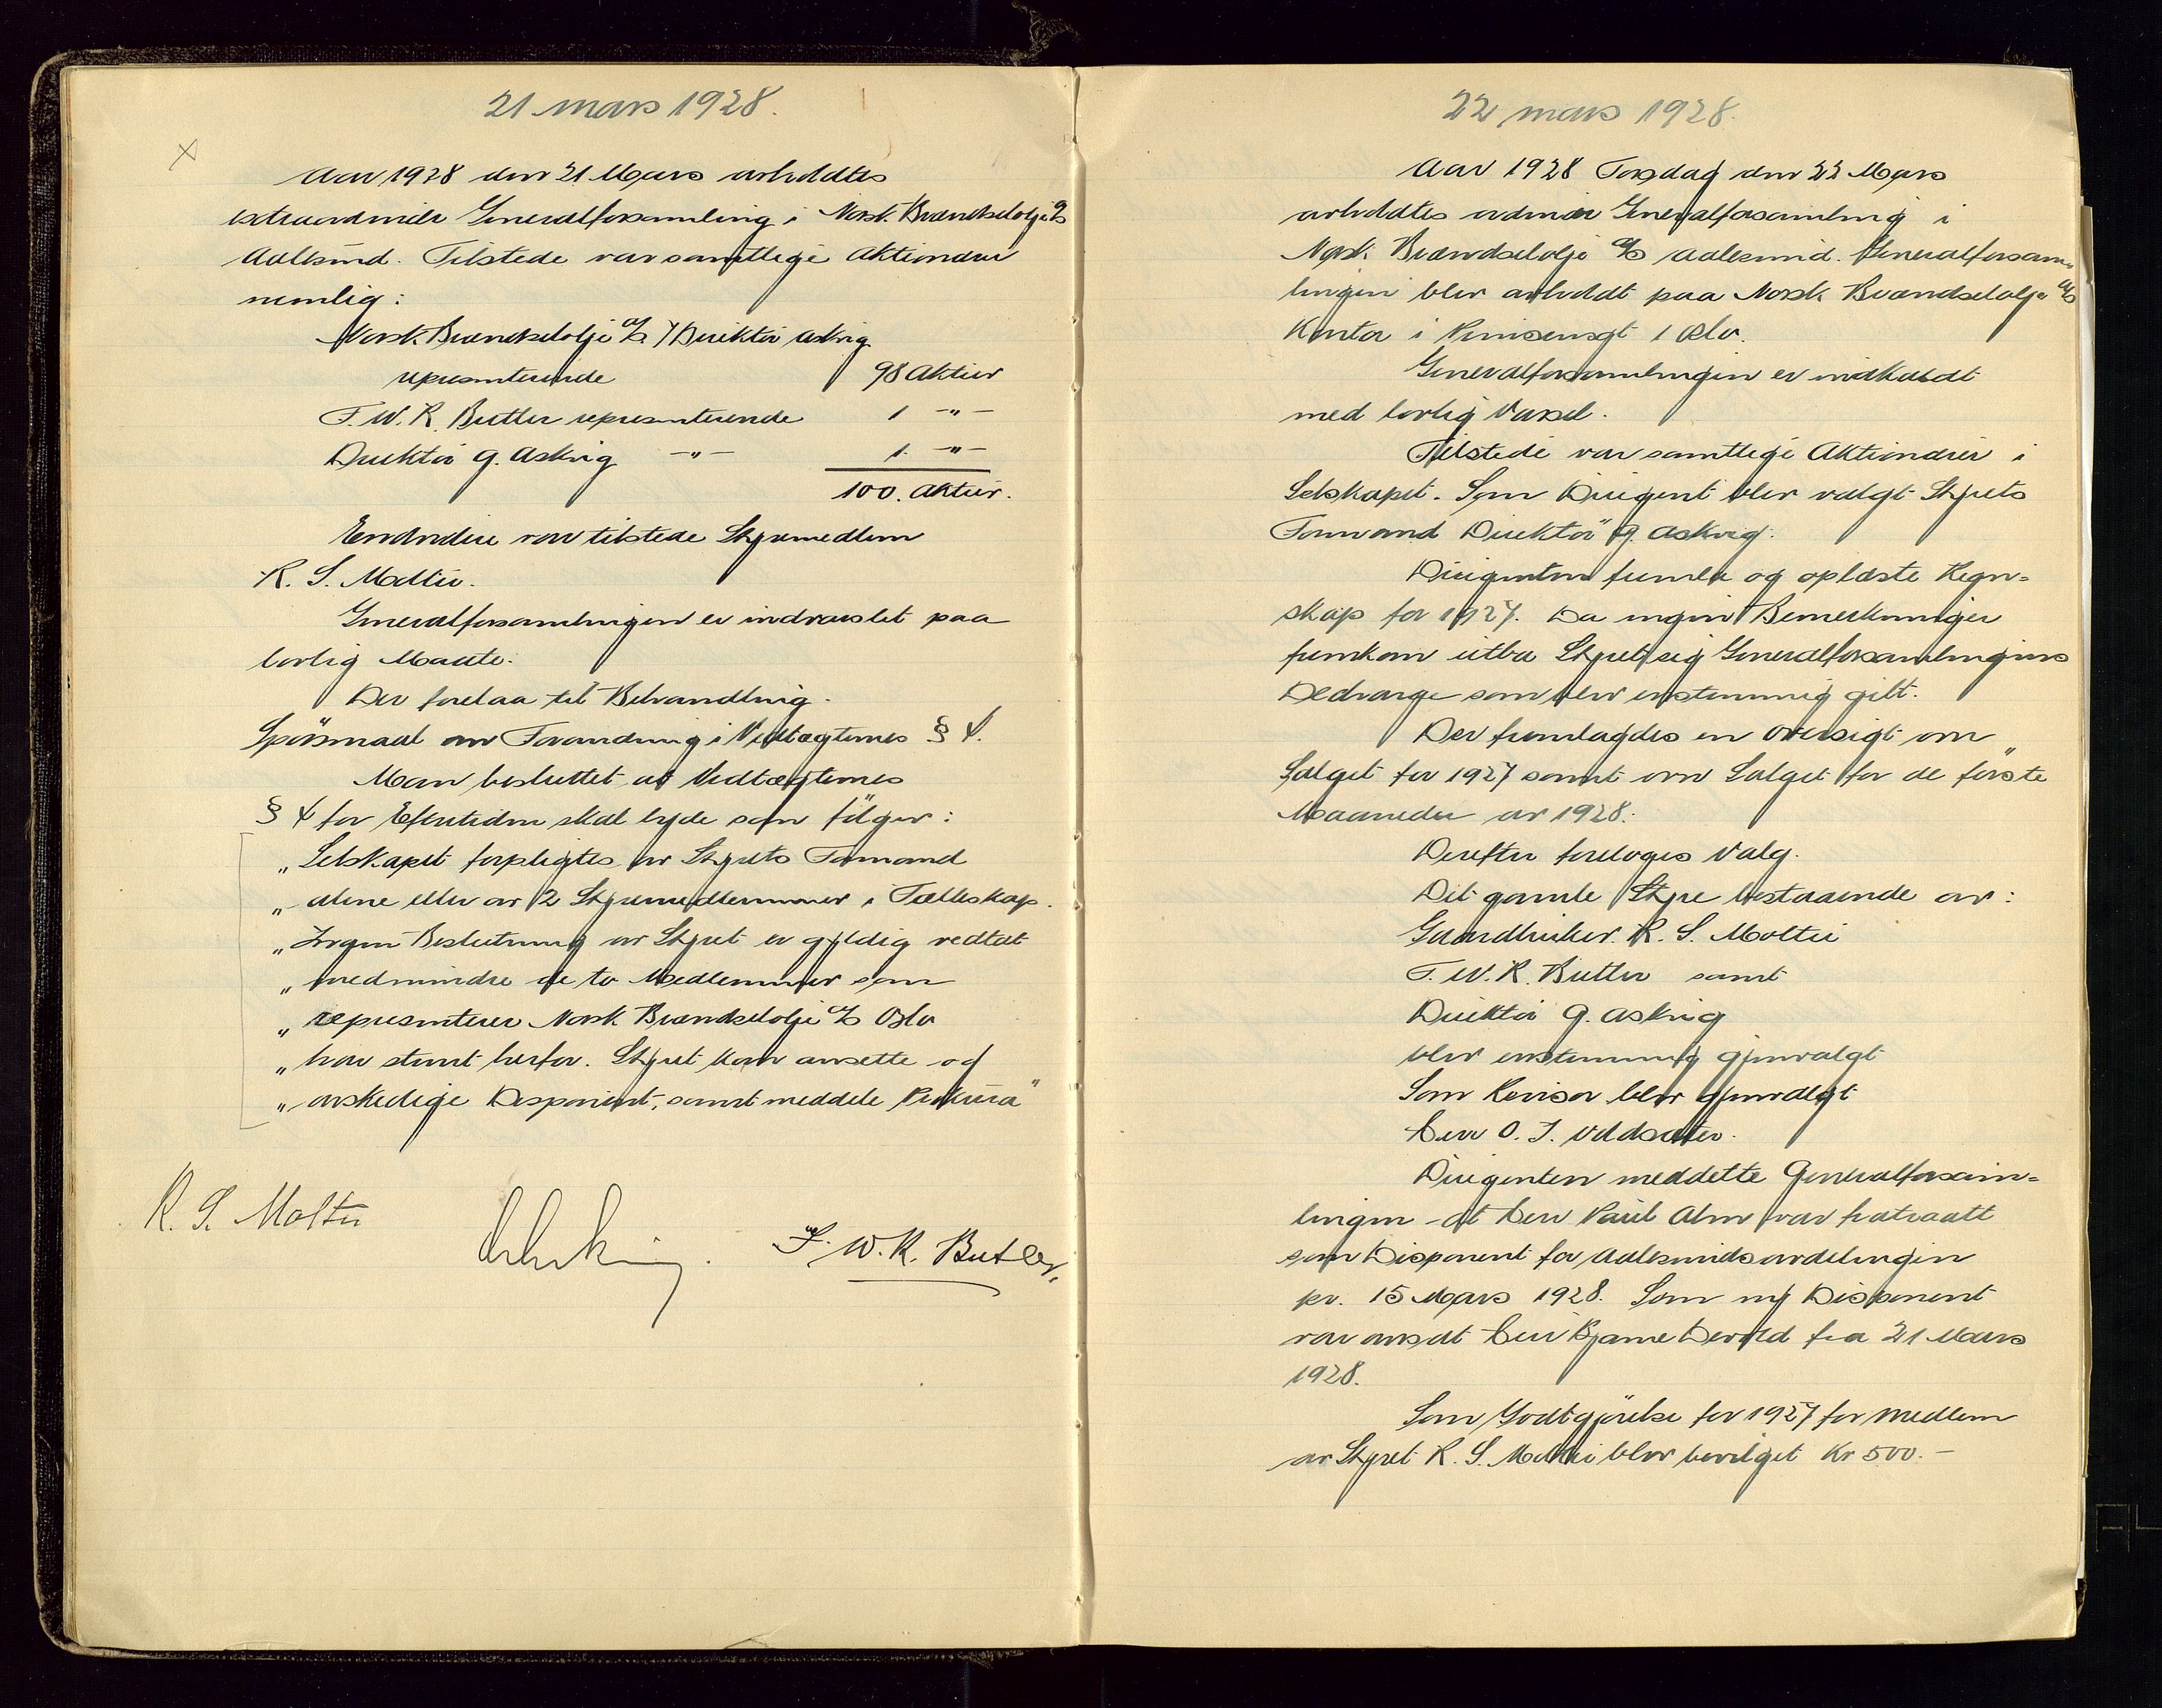 21 mars 1928.
Aar 1928 den 21 Mars avholdtes
extraordinær Generalforsamling i Norsk Brændselolje A/S
Aalesund. Tilstede var samtlige Aktionærer
nemlig:
Norsk Brændselolje A/S v/ Direktør Askvig
representerende 98 Aktier
F. W. R. Butler representerende 1 -"-
Direktör G. Askvig -"- 1. -"-
100. Aktier.
Endvidere var tilstede Styremedlem
R. S. Moltu.
Generalforsamlingen er indvarslet paa
lovlig Maate.
Der forelaa til Behandling.
Spörsmaal om Forandring i Vedtægternes § 4.
Man besluttet at Vedtægternes
§ 4 for Eftertiden skal lyde som fölger:
„Selskapet forpligtes av Styrets Formand
„alene eller av 2 Styremedlemmer i Fælleskap.
„Ingen Beslutning av Styret er gyldig vedtat
„medmindre de to Medlemmer som
„representerer Norsk Brændselolje A/S Oslo
„har stemt herfor. Styret kan ansette og
„avskedige Disponent, samt meddele Prokura"
R. S. Moltu F. W. R. Butler.
22 mars 1928.
Aar 1928 Torsdag den 22 Mars
avholdtes ordinær Generalforsamling i
Norsk Brændselolje A/S Aalesund. Generalforsam-
lingen blev avholdt paa Norsk Brændselolje A/S
Kontor i 1 Oslo.
Generalforsamlingen er indkaldt
med lovlig Varsel.
Tilstede var samtlige Aktionærer i
Selskapet. Som Dirigent blev valgt Styrets
Formand Direktör G. Askvig.
Dirigenten fremla og oplæste Regn=
skap for 1927. Da ingen Bemerkninger
fremkom utba Styret sig Generalforsamlingens
Decharge som blev enstemmig gitt.
Der fremlagdes en Oversigt om
Salget for 1927 samt om Salget for de förste
Maaneder av 1928.
Derefter foretoges Valg.
Det gamle Styre bestaaende av:
Gaardbruker R. S. Moltu
F. W. R. Butler samt
Direktör G. Askvig
blev enstemmig gjenvalgt
Som Revisor blev gjenvalgt
Herr O. J.
Dirigenten meddelte Generalforsam=
lingen at Herr Paul Alm var fratraatt
som Disponent for Aalesundsavdelingen
pr. 15 Mars 1928. Som ny Disponent
var ansat Herr Bjarne Devold fra 21 Mars
1928.
Som Godtgjörelse for 1927 for Medlem
av Styret R. S. Moltu blev bevilget Kr 500.-